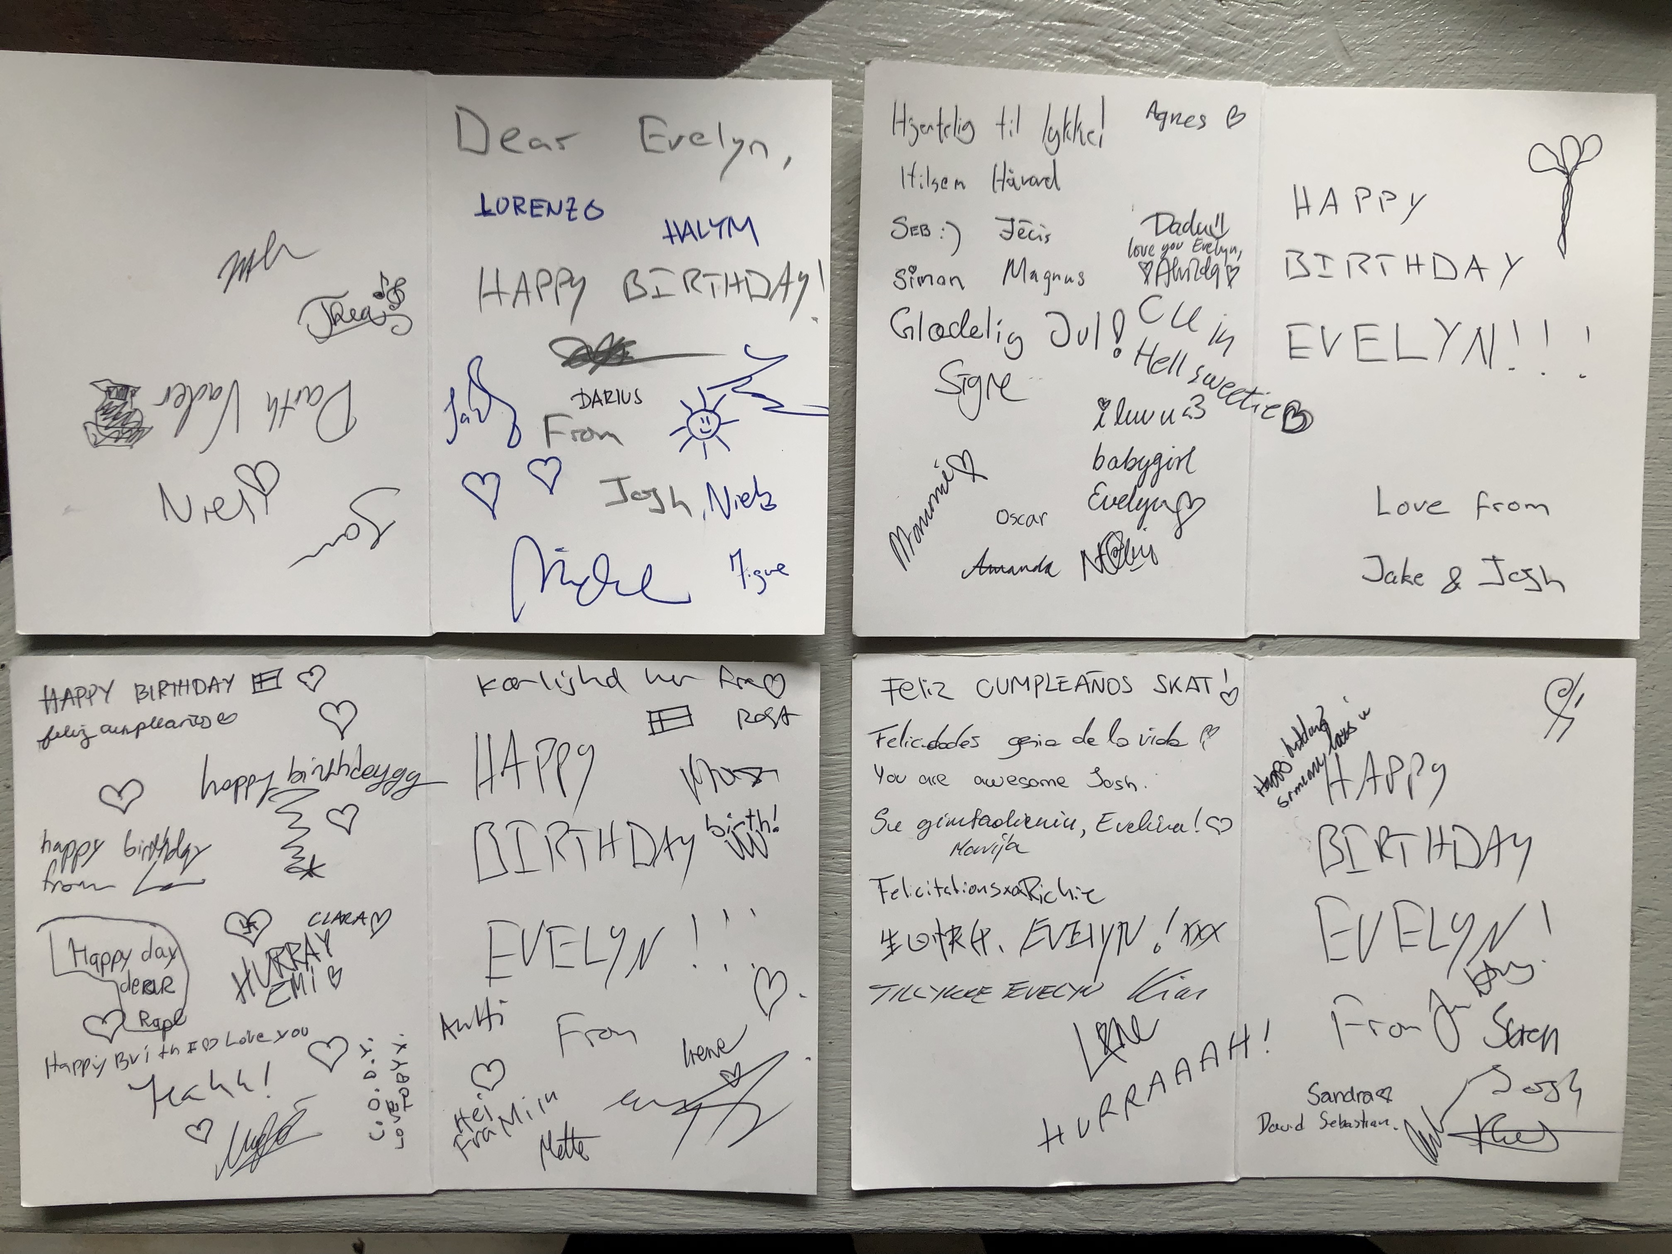 Dear Evelyn,
LORENZO
HALYM
HAPPY BIRTHDAY!
DARIUS
From
Josh, Niels
Darth Vader
Niels
Hjertelig til lykke!
Agnes
Hilsen Håvard
SEB :)
Jēcis
Dadu!!
love you Evelyn,
Simon Magnus
Gladelig Jul!
CU in
Hell sweetie
Signe
i luv u <3
babygirl
Evelyn
Mommie
Oscar
Amanda
HAPPY
BIRTHDAY
EVELYN!!!
Love from
Jake & Josh
HAPPY BIRTHDAY
feliz cumpleaños
happy birthdayyy
happy birthday
from
CLARA
HURRAY
EMI
Happy day
dear
Happy Love you
Yeahh!
C.O.O.Y.
LOVEBOYX
Kærlighd her fra
ROSA
HAPPY
BIRTHDAY
birth!
EVELYN!!!
Antti
From
Irene
Hei
Fra Mila
Mette
FELIZ CUMPLEAÑOS SKAT!
Felicidades genia de la vida
You are awesome Josh.
Su gimtadieniu, Evelina!
Monija
Felicitations xa Richie
EVELYN! xxx
TILLYKKE EVELYN
HURRAAAH!
HAPPY
BIRTHDAY
EVELYN!
From
Søren
Josh
Sandra
David Sebastian.